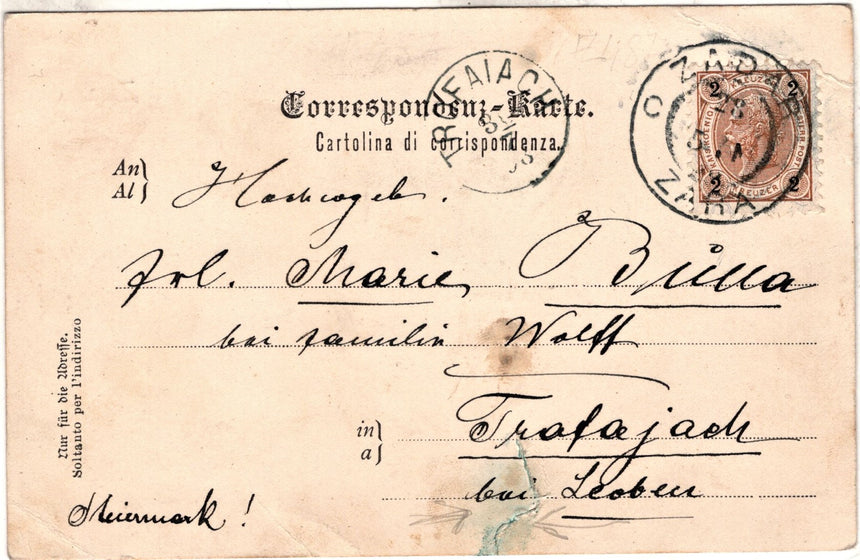 Correspondenz-Karte.
Cartolina di corrispondenza.
TROFAIACH
ZARA
ZARA
2 KREUZER 2
2 KREUZER 2
An
Al
Hochwogeb.
Frl. Marie Bulla
bei Familie Wolff
in
a
Trofajach
bei Leoben
Steiermark !
Nur für die Adresse.
Soltanto per l'indirizzo